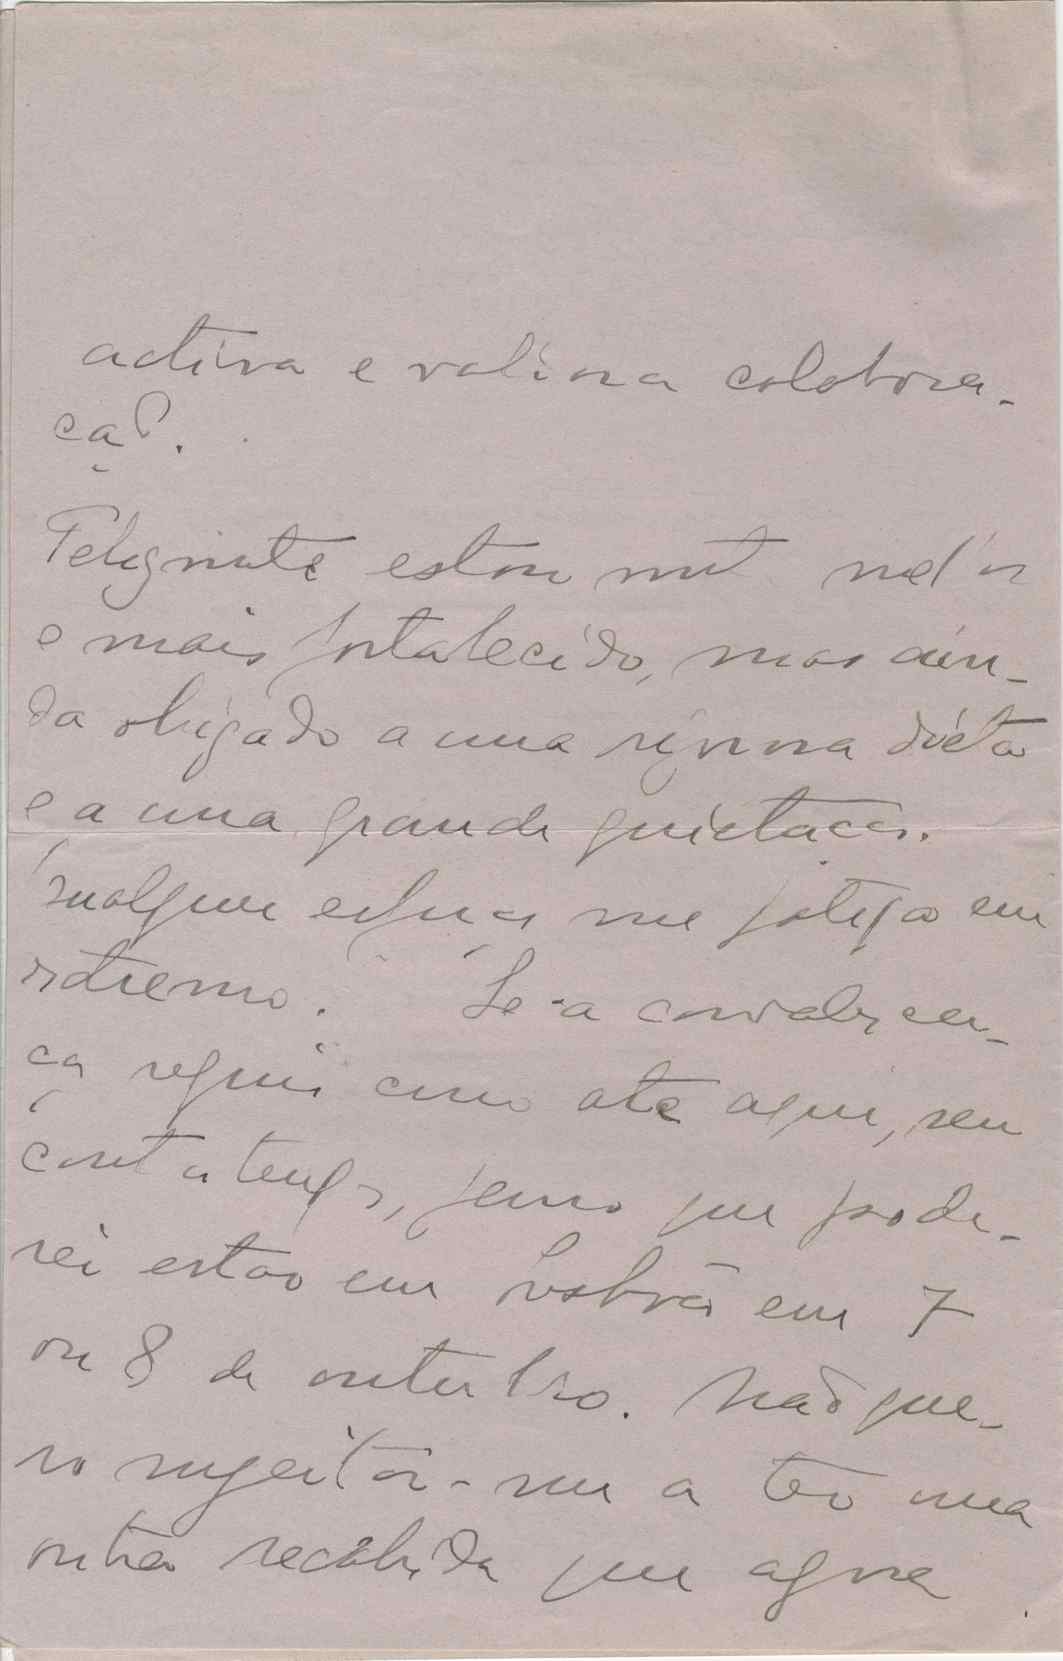 activa e valiosa colabora-
ção.
Felizmente estou mt. melhor
e mais fortalecido, mas ain-
da obrigado a uma rigorosa diéta
e a uma grande quietação.
Qualquer esforço me fatiga em
extremo. Se a convalescen-
ça seguir como até aqui, sem
contratempos, penso que pode-
rei estar em Lisbôa em 7
ou 8 de outubro. Não que-
ro sugeitar-me a ter uma
outra recahida que agora